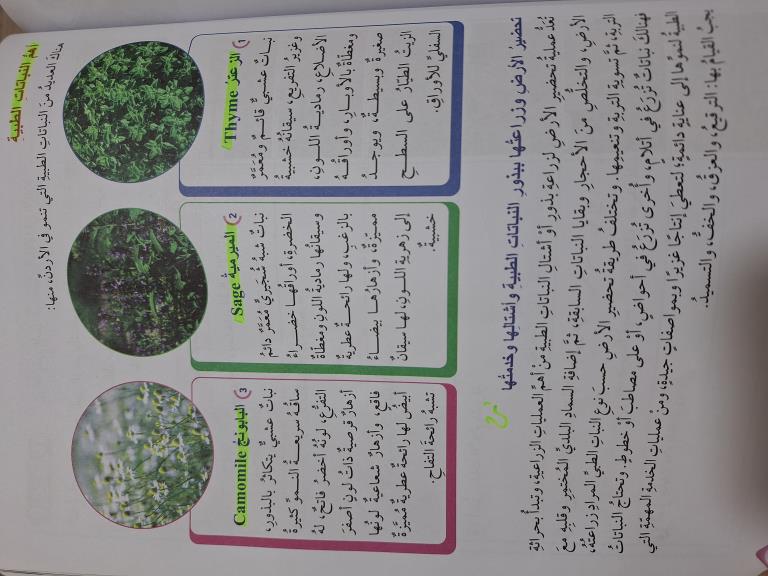 أهمُّ النباتاتِ الطبيةِ
هناكَ العديدُ منَ النباتاتِ الطبيةِ التي تنمو في الأردنِّ، منها:
1 الزعتر Thyme
نباتٌ عشبيٌّ قائمٌ ومُعمَّرٌ
وغزيرُ التفريعِ، سيقانُهُ خشبيةٌ
ومغطاةٌ بالأوبارِ، وأوراقُهُ
الأضلاعِ، رماديةُ اللونِ،
صغيرةٌ وبسيطةٌ، ويوجدُ
الزيتُ الطيّارُ على السطحِ
السفليِّ للأوراقِ.
2 الميرمية Sage
نباتٌ شبهُ شُجيريٍّ مُعمَّرٌ دائمُ
الخضرةِ، أوراقُها خضراءُ
وسيقانُها رماديةُ اللونِ ومغطاةٌ
بالزغبِ، ولها رائحةٌ عطريةٌ
مميزةٌ، وأزهارُها بيضاءُ
إلى زهريةِ اللونِ، لها سيقانٌ
خشبيةٌ.
3 البابونج Camomile
نباتٌ عشبيٌّ يتكاثرُ بالبذورِ،
ساقُهُ سريعةُ النموِّ كثيرةُ
التفرُّعِ، لونُهُ أخضرُ فاتحٌ، لهُ
أزهارٌ قرصيةٌ ذاتُ لونٍ أصفرَ
فاقعٍ، وأزهارٌ شعاعيةٌ لونُها
أبيضُ لها رائحةٌ عطريةٌ مُميَّزةٌ
تشبهُ رائحةَ التفاحِ.
تحضيرُ الأرضِ وزراعتُها ببذورِ النباتاتِ الطبيةِ وأشتالِها وخدمتُها
تُعدُّ عمليةُ تحضيرِ الأرضِ لزراعةِ بذورِ أوْ أشتالِ النباتاتِ الطبيةِ منْ أهمِّ العملياتِ الزراعيةِ، وتبدأُ بحراثةِ
الأرضِ، والتخلُّصِ منَ الأحجارِ وبقايا النباتاتِ السابقةِ، ثمَّ إضافةِ السمادِ البلديِّ المُختمِرِ وقلبِهِ معَ
التربةِ، ثمَّ تسويةِ التربةِ وتنعيمِها. وتختلفُ طريقةُ تحضيرِ الأرضِ حسبَ نوعِ النباتِ الطبيِّ المرادِ زراعتُهُ،
فهنالكَ نباتاتٌ تُزرَعُ في أتلامٍ، وأُخرى تُزرَعُ في أحواضٍ، أوْ على مصاطبَ أوْ خطوطٍ. وتحتاجُ النباتاتُ
الطبيةُ لنموِّها إلى عنايةٍ دائمةٍ؛ لتعطيَ إنتاجًا غزيرًا وبمواصفاتٍ جيدةٍ، ومنْ عملياتِ الخدمةِ المهمَّةِ التي
يجبُ القيامُ بها: الترقيعُ، والعزقُ، والخفُّ، والتسميدُ.